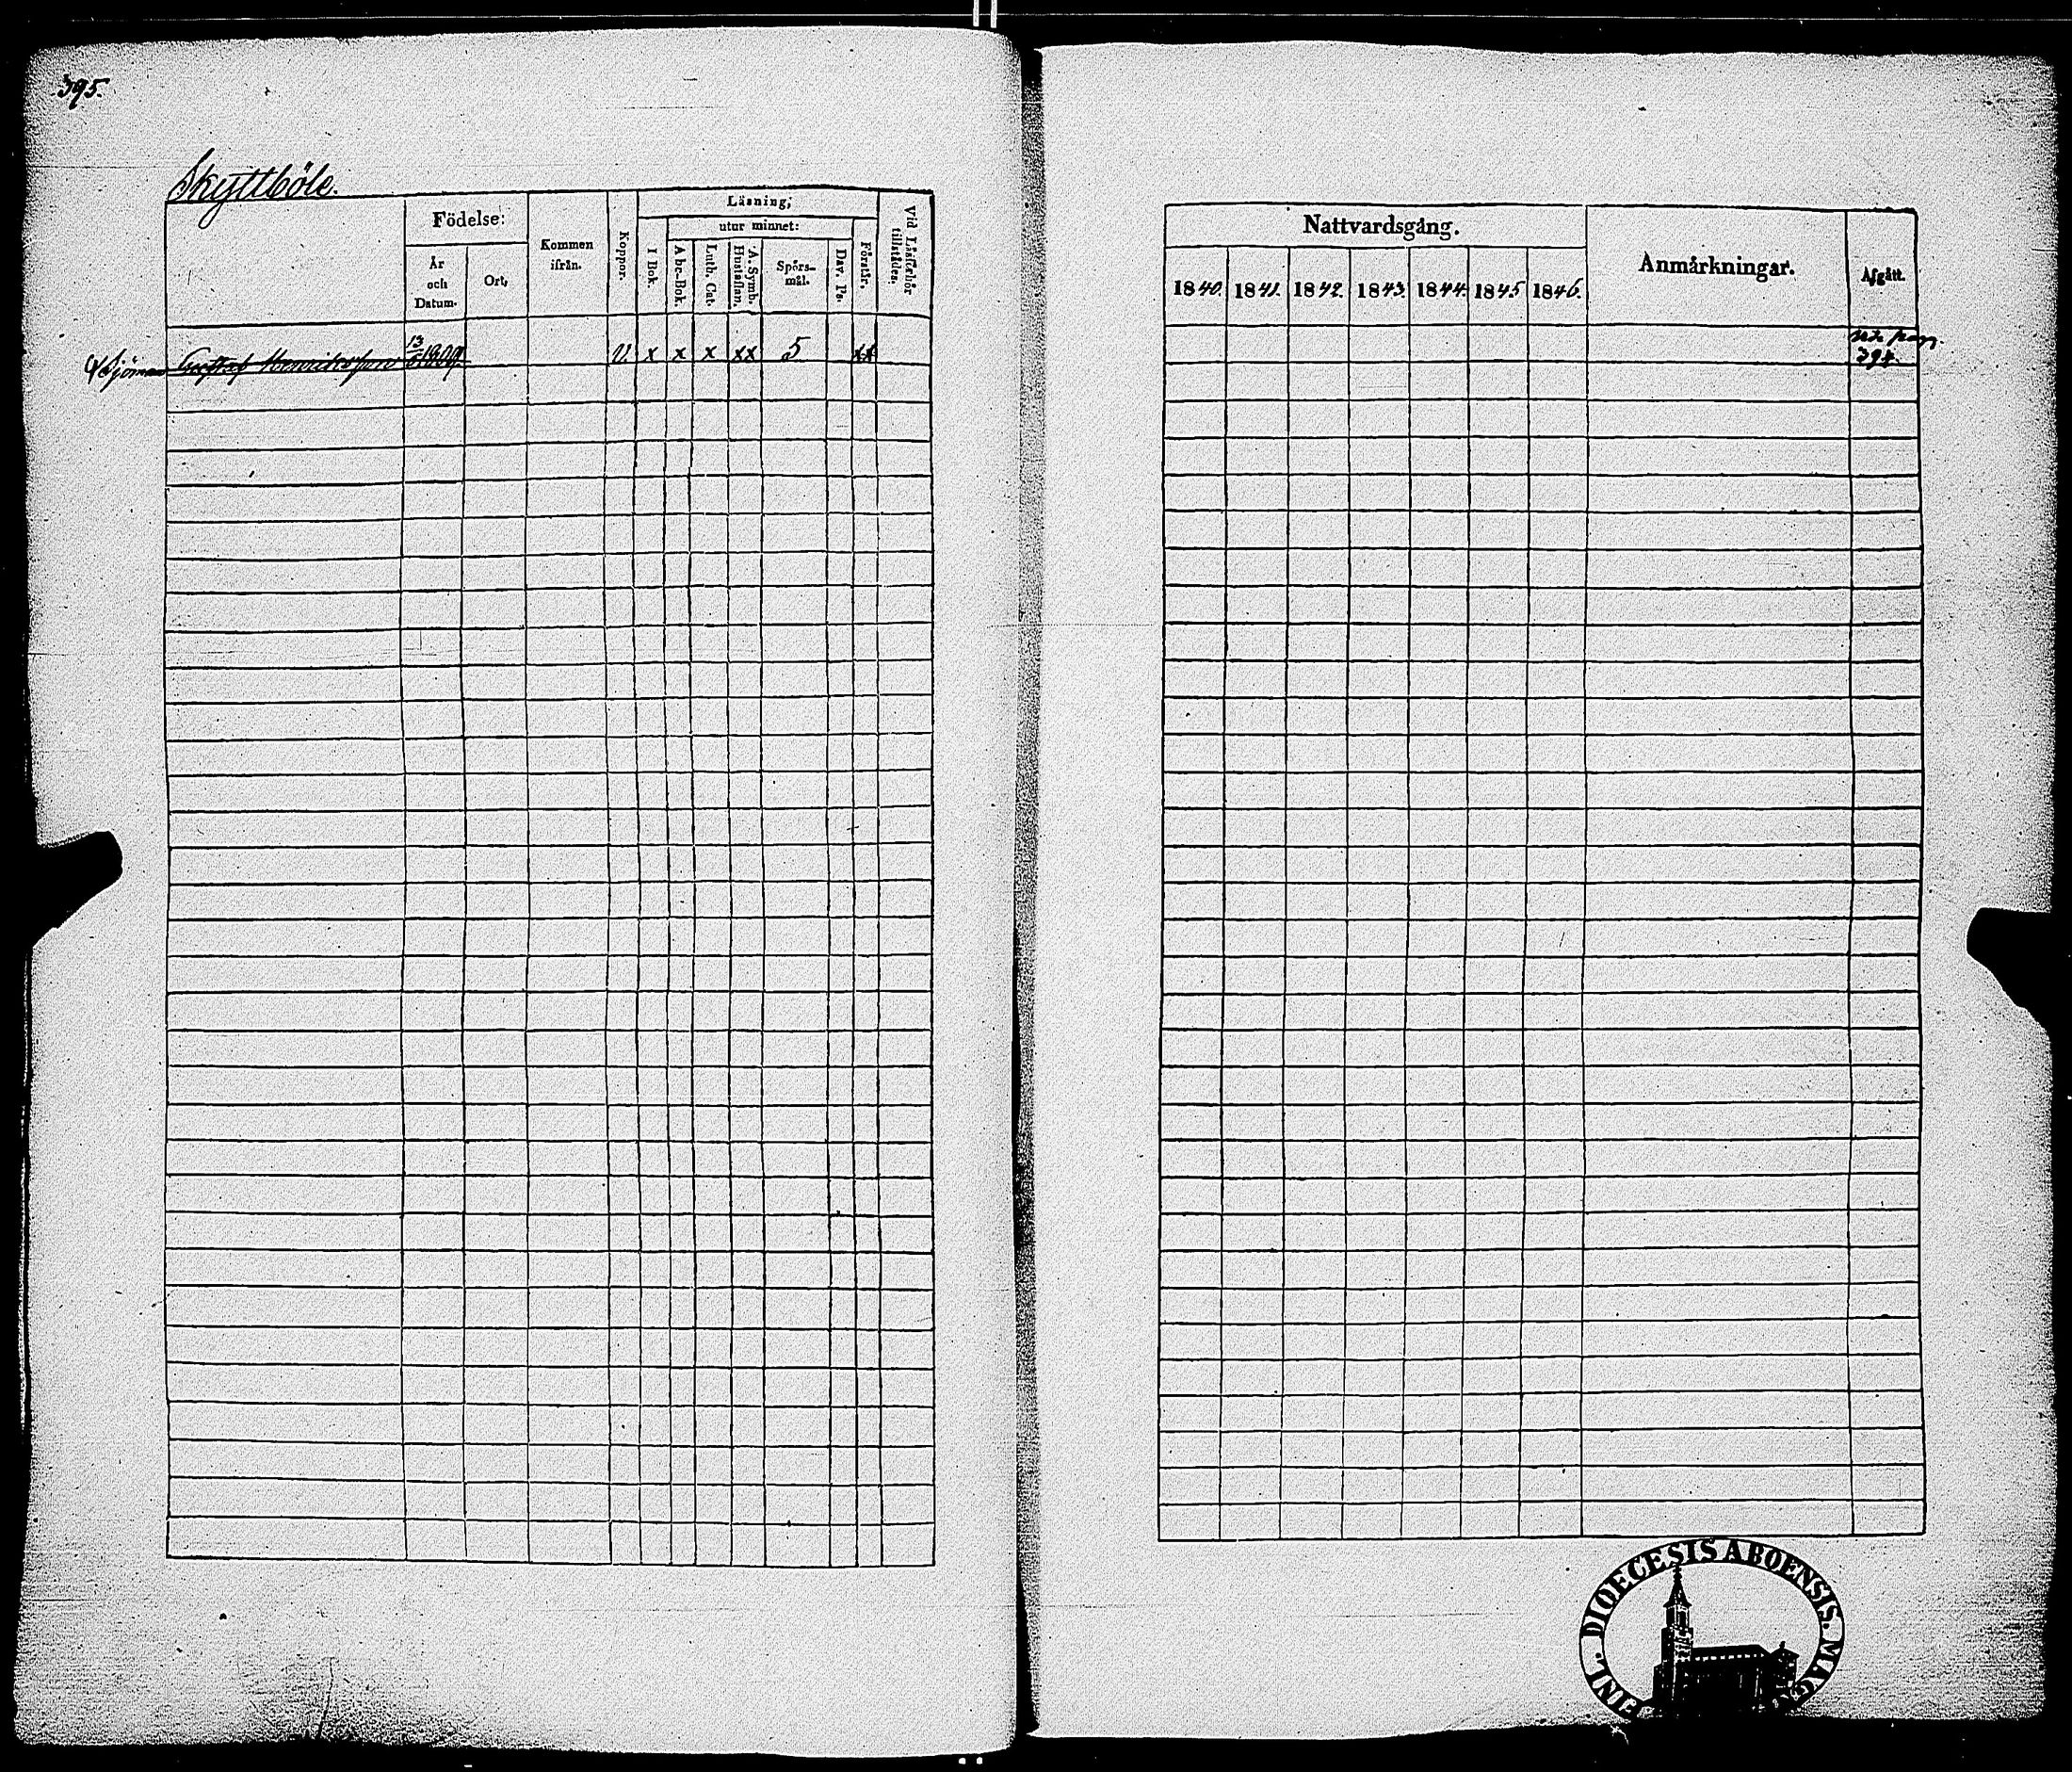 395.
Skyttböle.
Födelse:
År och Datum.
Ort,
Kommen ifrån.
Koppor.
Läsning;
utur minnet:
I Bok.
Abc-Bok.
Luth. Cat.
A. Symb. Hustaflan.
Spörs-mål.
Dav. Ps.
Förstår.
Vid Läsförhör tillstädes.
Sjöman Gustaf Henriksson 13 1809. V. x x x xx 5 xx
Nattvardsgång.
1840. 1841. 1842. 1843. 1844. 1845 1846.
Anmärkningar.
Afgått.
pag.
394.
FINL. DIOECESIS ABOENSIS. MAG